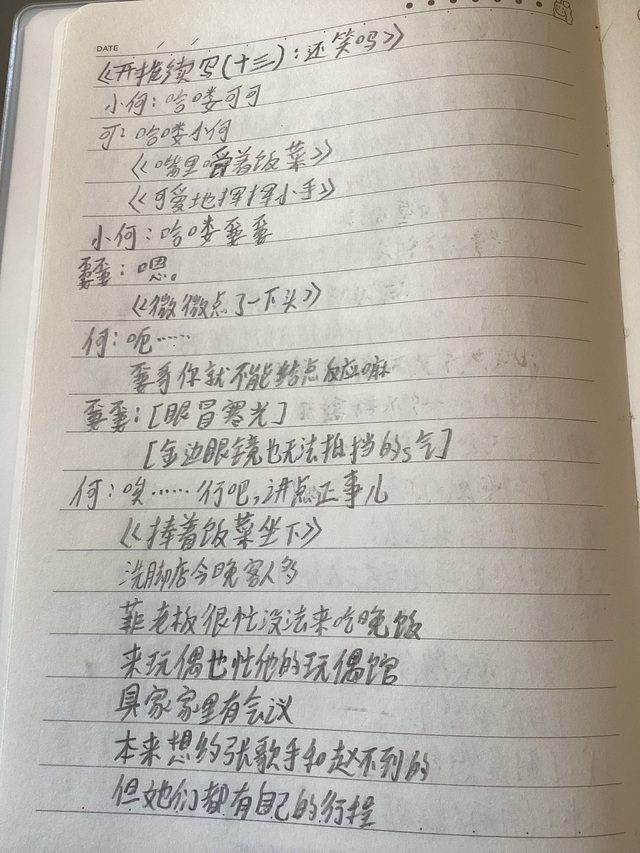 DATE / /
《开推续写(十三):还笑吗》
小何:哈喽可可
可:哈喽小何
《嘴里嚼着饭菜》
《可爱地挥挥小手》
小何:哈喽
:嗯。
《微微点了一下头》
何:呃……
哥你就不能给点反应嘛
:[眼冒寒光]
[金边眼镜也无法抵挡的s气]
何:唉……行吧,讲点正事儿
《捧着饭菜坐下》
洗脚店今晚客人多
菲老板很忙没法来吃晚饭
来玩偶也忙他的玩偶馆
具家家里有会议
本来想约张歌手和赵不到的
但她们都有自己的行程